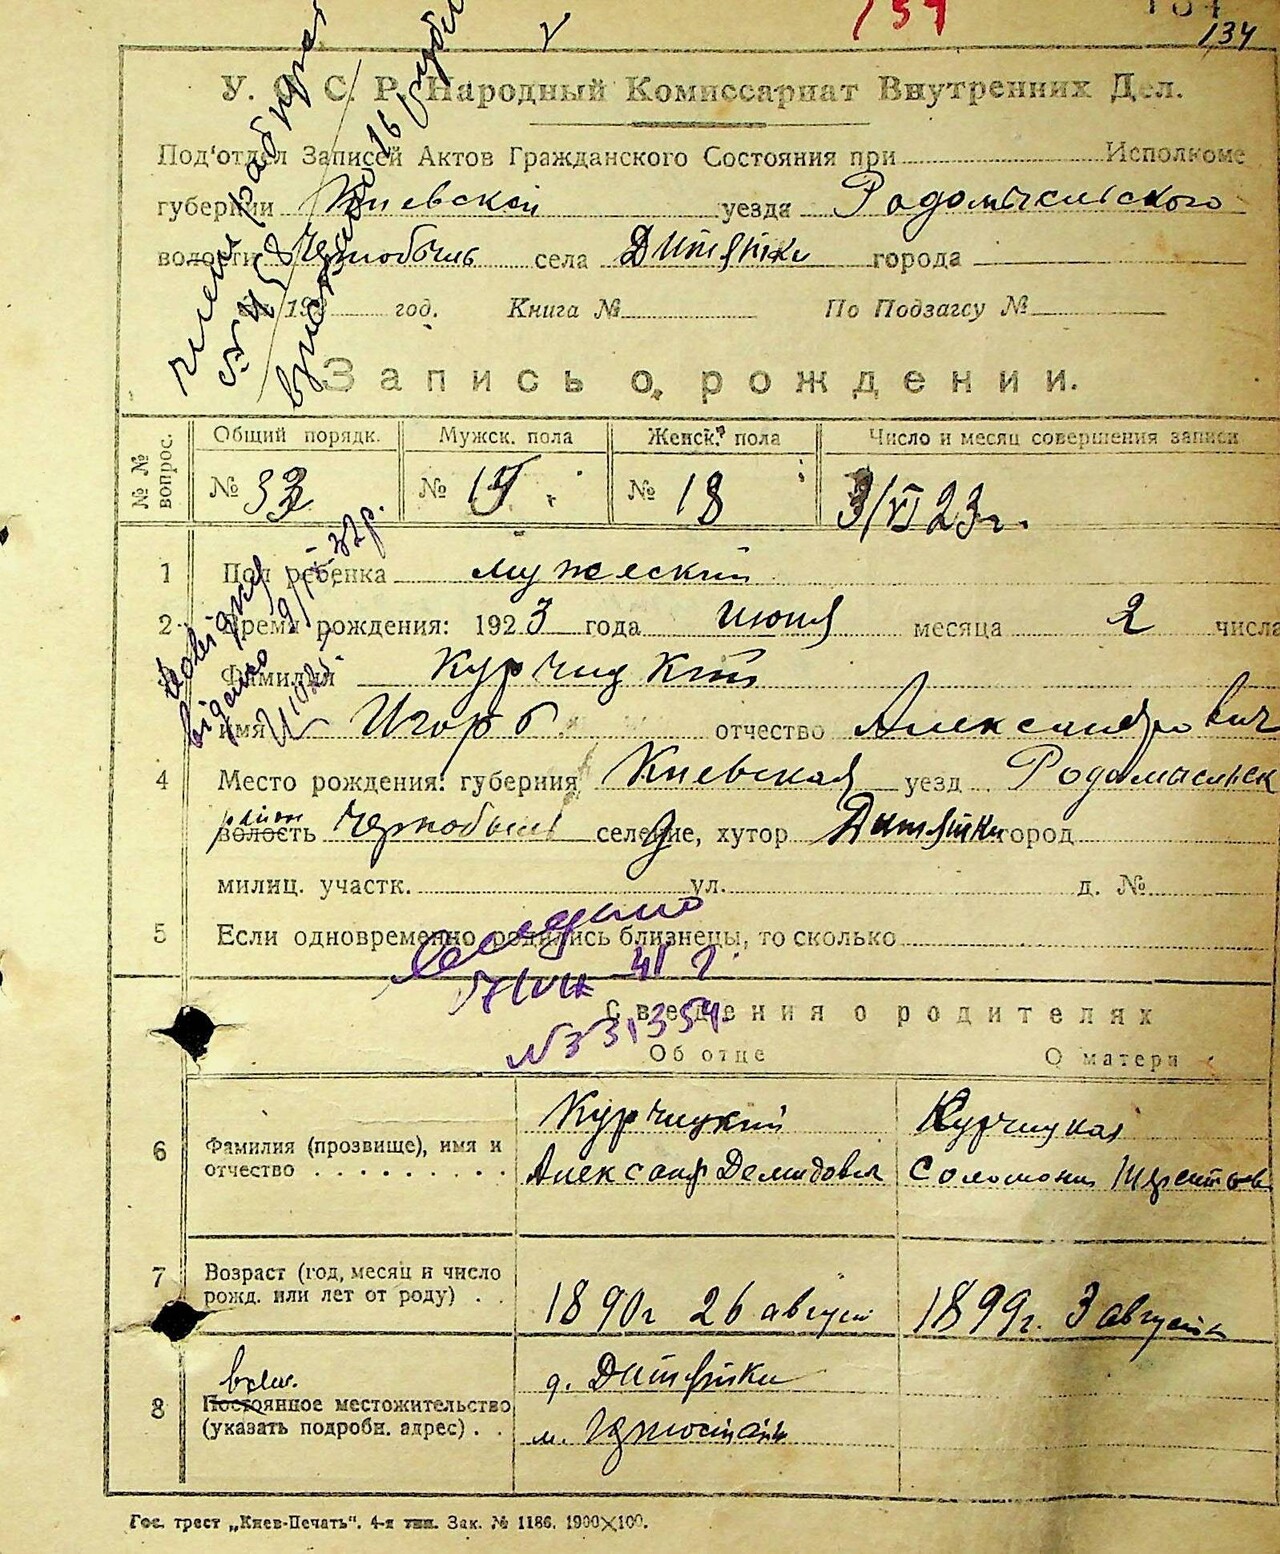 134
134
У. С. С. Р. Народный Комиссариат Внутренних Дел.
Под'отдел Записей Актов Гражданского Состояния при Исполкоме
губернии Киевской уезда Радомысльского
волости Чернобыль села Дитятки города
192 год. Книга № По Подзагсу №
Запись о рождении.
№№ вопрос. Общий порядк. Мужск. пола Женск. пола Число и месяц совершения записи
№ 33 № 15 № 18 3/VI 23 г.
1 Пол ребенка мужеский
2 Время рождения: 1923 года июня месяца 2 числа
Фамилия Курчицкий
имя Игорь отчество Александрович
4 Место рождения: губерния Киевская уезд Радомысльск
район
волость Чернобыль селение, хутор Дитятки город
милиц. участк. ул. д. №
5 Если одновременно родились близнецы, то сколько
41 г.
№ 331354
Сведения о родителях
Об отце О матери
6 Фамилия (прозвище), имя и отчество Курчицкий Курчицкая
Александр Демидович Соломония
7 Возраст (год, месяц и число рожд. или лет от роду) 1890 г 26 август 1899 г. 3 августа
8 Постоянное местожительство (указать подробн. адрес) д. Дитятки
Гос. трест „Киев-Печать“. 4-я тип. Зак. № 1186. 1900×100.